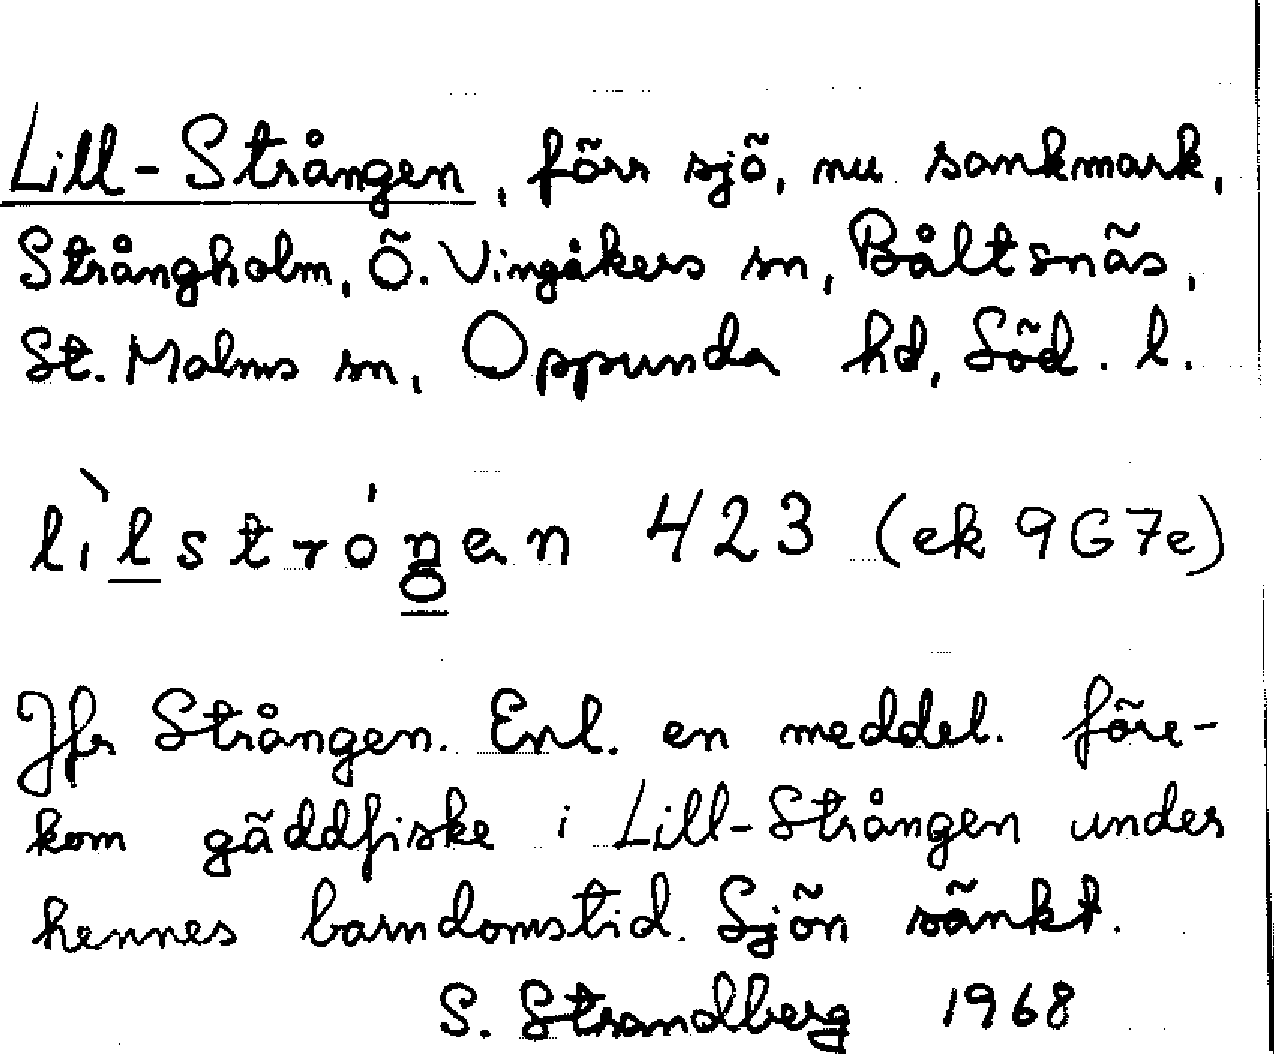 Lill-Strången, förr sjö, nu sankmark,
Strångholm, Ö. Vingåkers sn, Båltsnäs,
St. Malms sn, Oppunda hd, Söd. l.
lìlstróngen 423 (ek 9G7e)
Jfr Strången. Enl. en meddel. före-
kom gäddfiske i Lill-Strången under
hennes barndomstid. Sjön sänkt.
S. Strandberg 1968